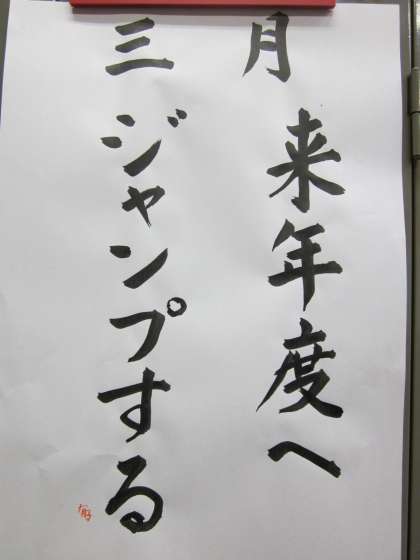 三月
来年度へ
ジャンプする